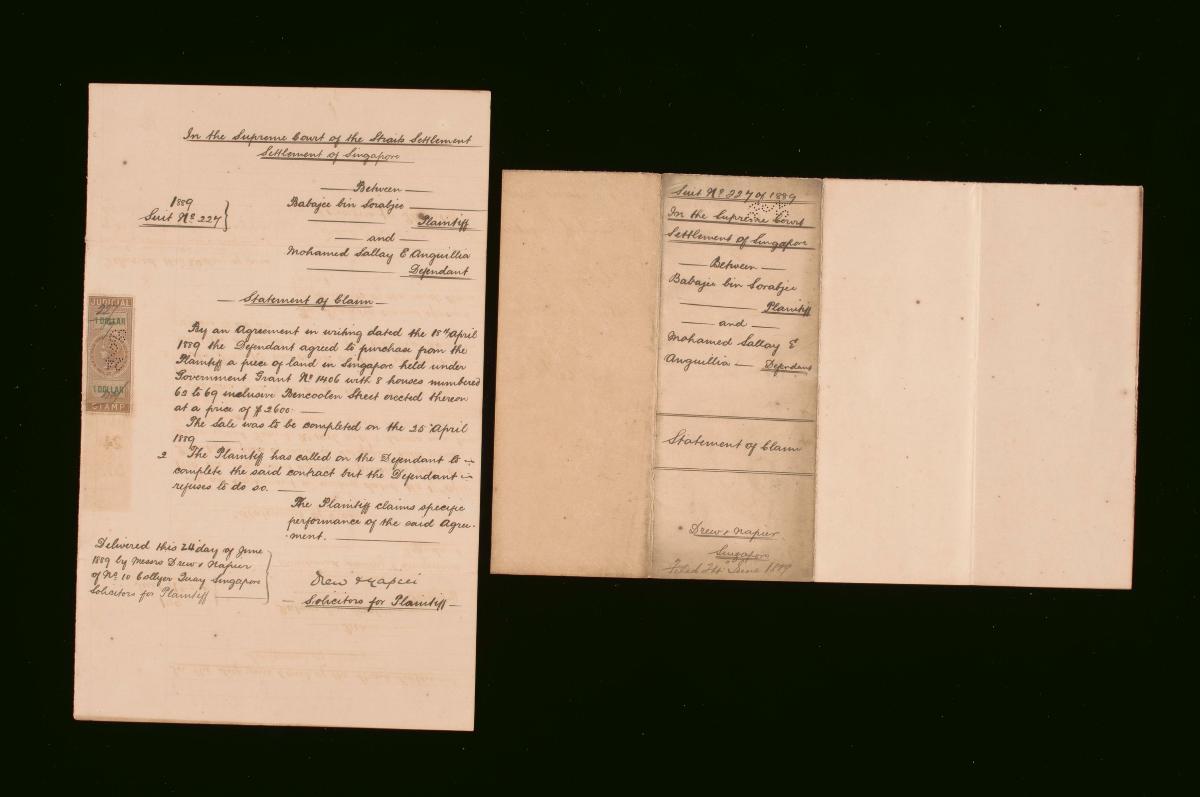 In the Supreme Court of the Straits Settlement
Settlement of Singapore
Between
1889
Suit No 227
Babajee bin Sorabjee
Plaintiff
and
Mohamed Sallay E Anguillia
Defendant
Statement of Claim
By an Agreement in writing dated the 15th April
1889 the Defendant agreed to purchase from the
Plaintiff a piece of land in Singapore held under
Government Grant No 1406 with 8 houses numbered
62 to 69 inclusive Bencoolen Street erected thereon
at a price of $2600.
The Sale was to be completed on the 25 April
1889
2 The Plaintiff has called on the Defendant to
complete the said contract but the Defendant
refuses to do so.
The Plaintiff claims specific
performance of the said Agree-
-ment.
Delivered this 24 day of June
1889 by Messrs Drew & Napier
of No 10 Collyer Quay Singapore
Solicitors for Plaintiff
Drew & Napier
Solicitors for Plaintiff
JUDICIAL
227
1 DOLLAR
1 DOLLAR
STAMP
Suit No 227 of 1889
In the Supreme Court
Settlement of Singapore
Between
Babajee bin Sorabjee
Plaintiff
and
Mohamed Sallay E
Anguillia Defendant
Statement of Claim
Drew & Napier
Singapore
Filed 24 June 1889